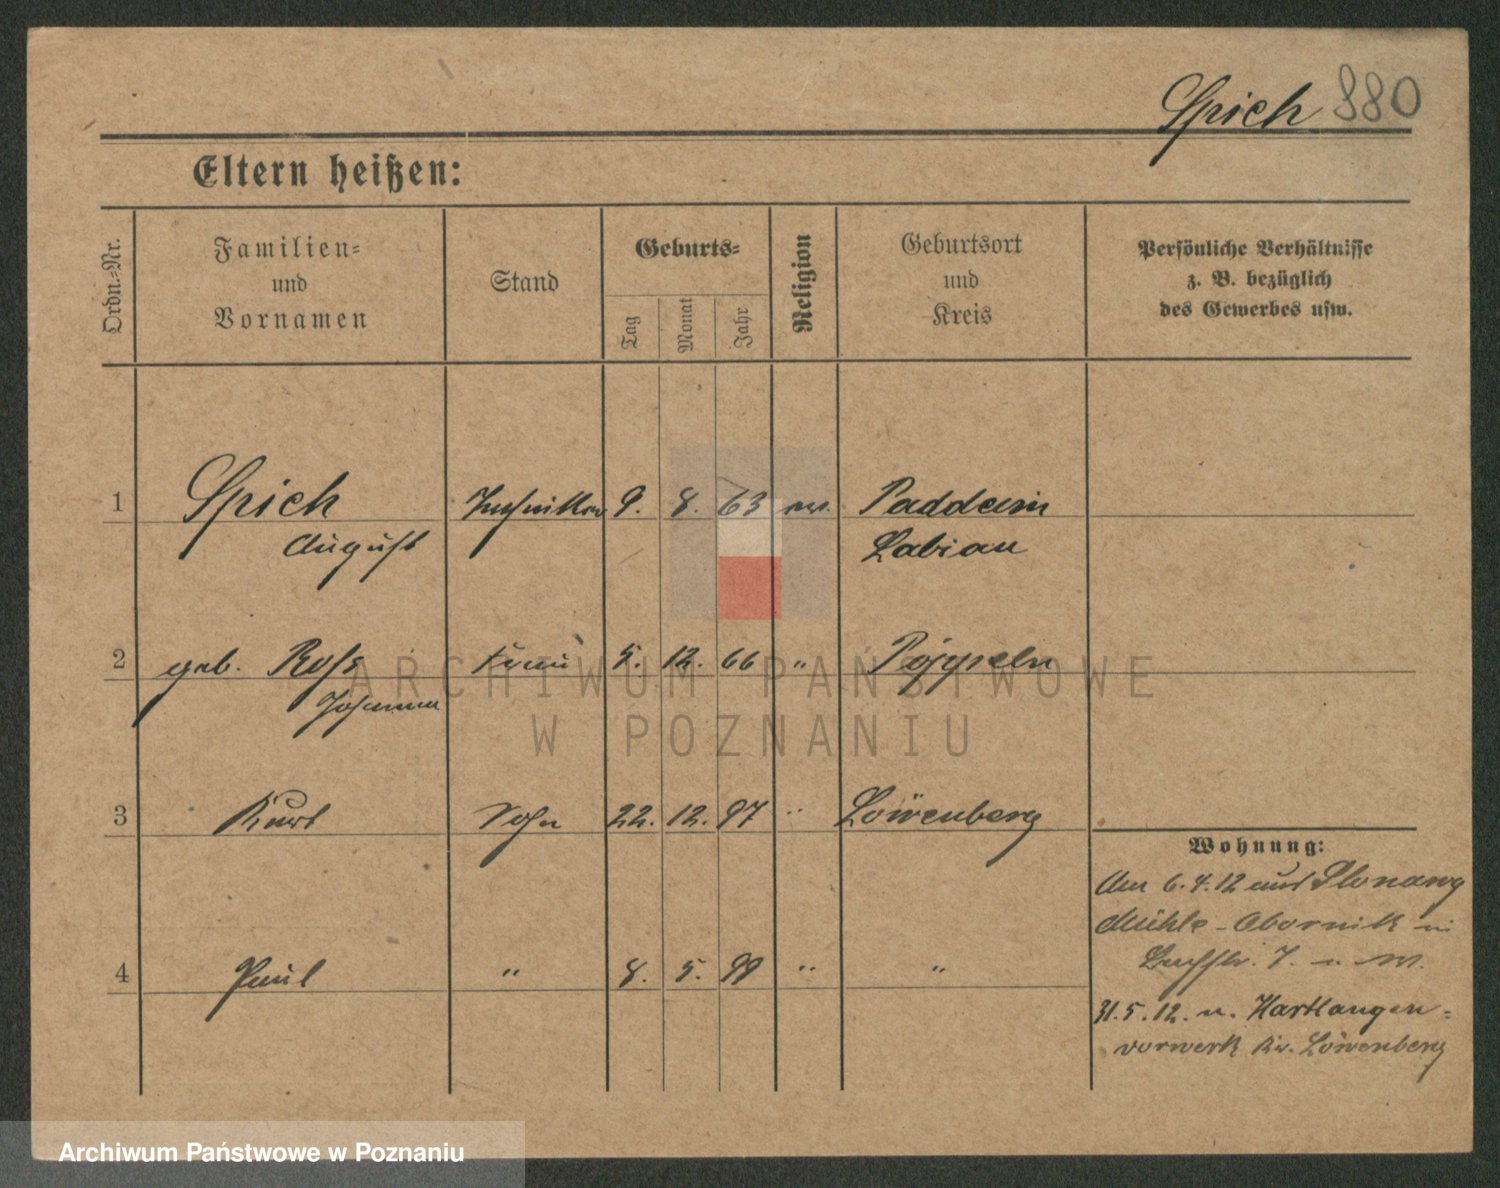 Spich 880
Eltern heißen:
Ordn.-Nr.
Familien-
und
Vornamen
Stand
Geburts-
Tag
Monat
Jahr
Religion
Geburtsort
und
Kreis
Persönliche Verhältnisse
z. B. bezüglich
des Gewerbes usw.
1 Spich Techniker 9. 8. 63 ev. Paddeim
August Labiau
2 geb. Ross Frau 5. 12. 66 " Pöppeln
Johanna
3 Kurt Sohn 22. 12. 97 " Löwenberg
Wohnung:
Am 6.4.12 aus
Mühle - Obornik in
4 Paul " 8. 5. 99 " "
7.
31.5.12. n. Hartlangen-
vorwerk Kr. Löwenberg
ARCHIWUM PAŃSTWOWE
W POZNANIU
Archiwum Państwowe w Poznaniu